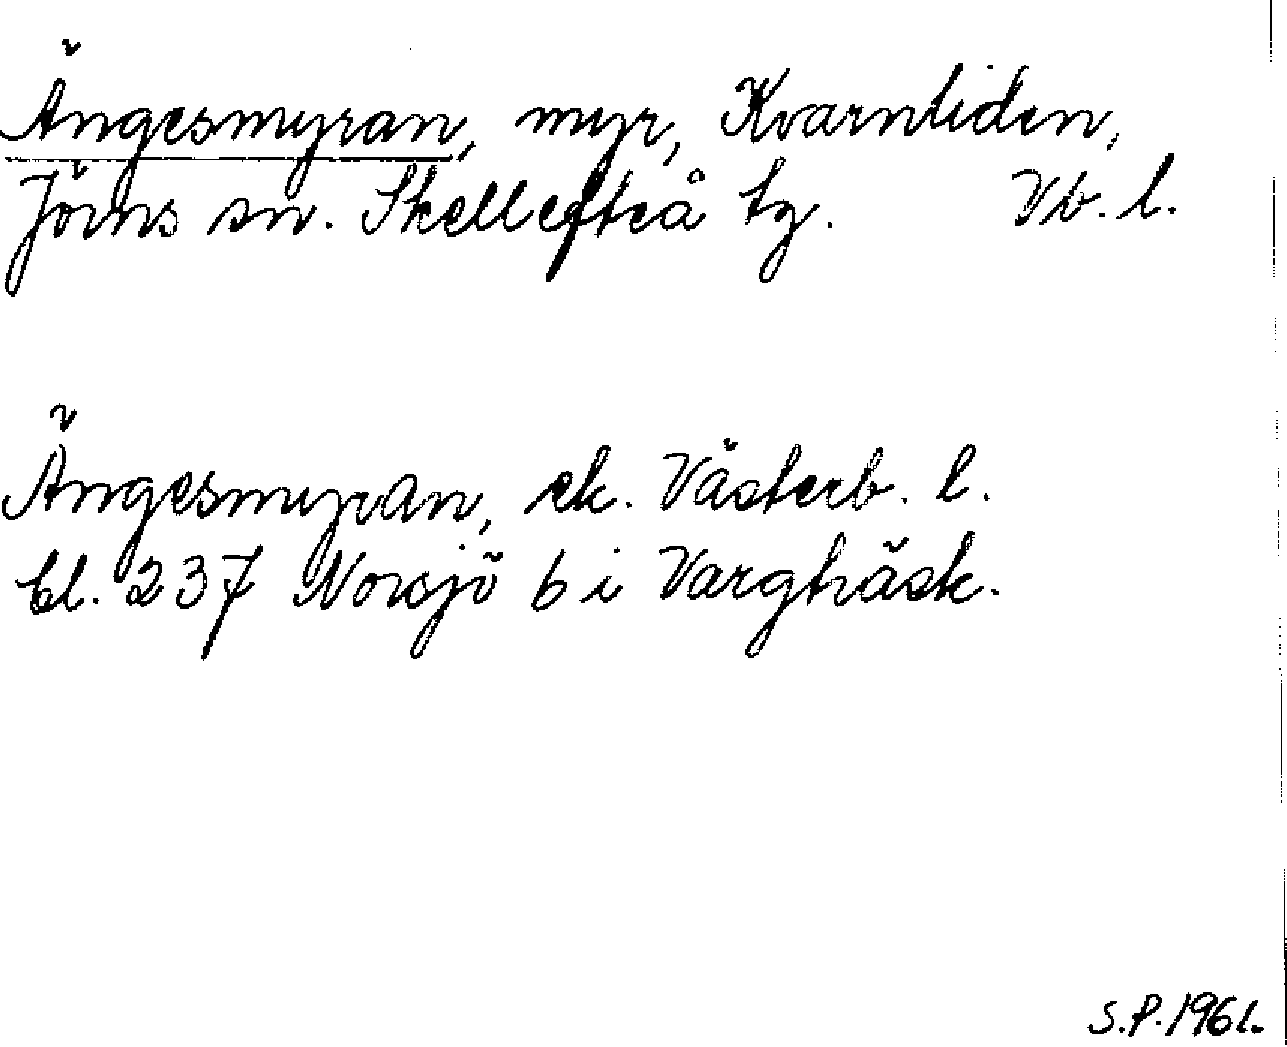 Ängesmyran, myr, Kvarnliden,
Jörns sn. Skellefteå tg. Vb. l.
Ängesmyran, ek. Västerb. l.
bl. 237 Norsjö 6 i Vargträsk.
S.P. 1961.